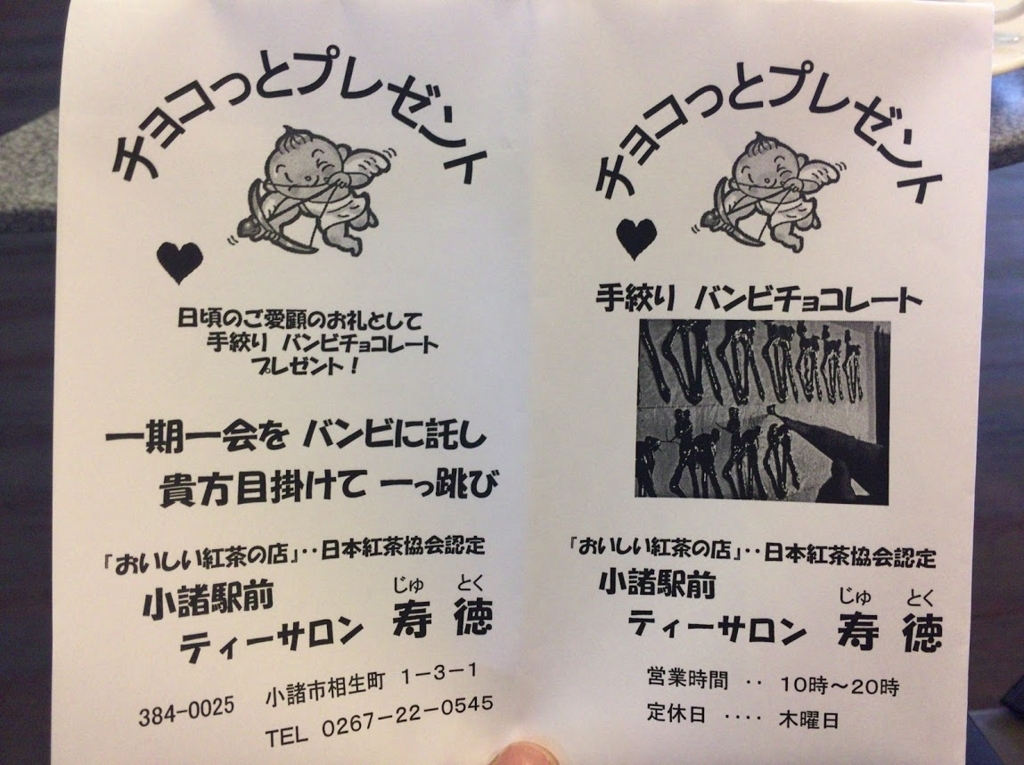 チョコっとプレゼント
日頃のご愛顧のお礼として
手絞り バンビチョコレート
プレゼント！
一期一会を バンビに託し
貴方目掛けて 一っ跳び
「おいしい紅茶の店」‥日本紅茶協会認定
小諸駅前
じゅ とく
ティーサロン 寿 徳
384-0025 小諸市相生町 1-3-1
TEL 0267-22-0545
チョコっとプレゼント
手絞り バンビチョコレート
「おいしい紅茶の店」‥日本紅茶協会認定
小諸駅前
じゅ とく
ティーサロン 寿 徳
営業時間 ‥ 10時～20時
定休日 ‥‥ 木曜日